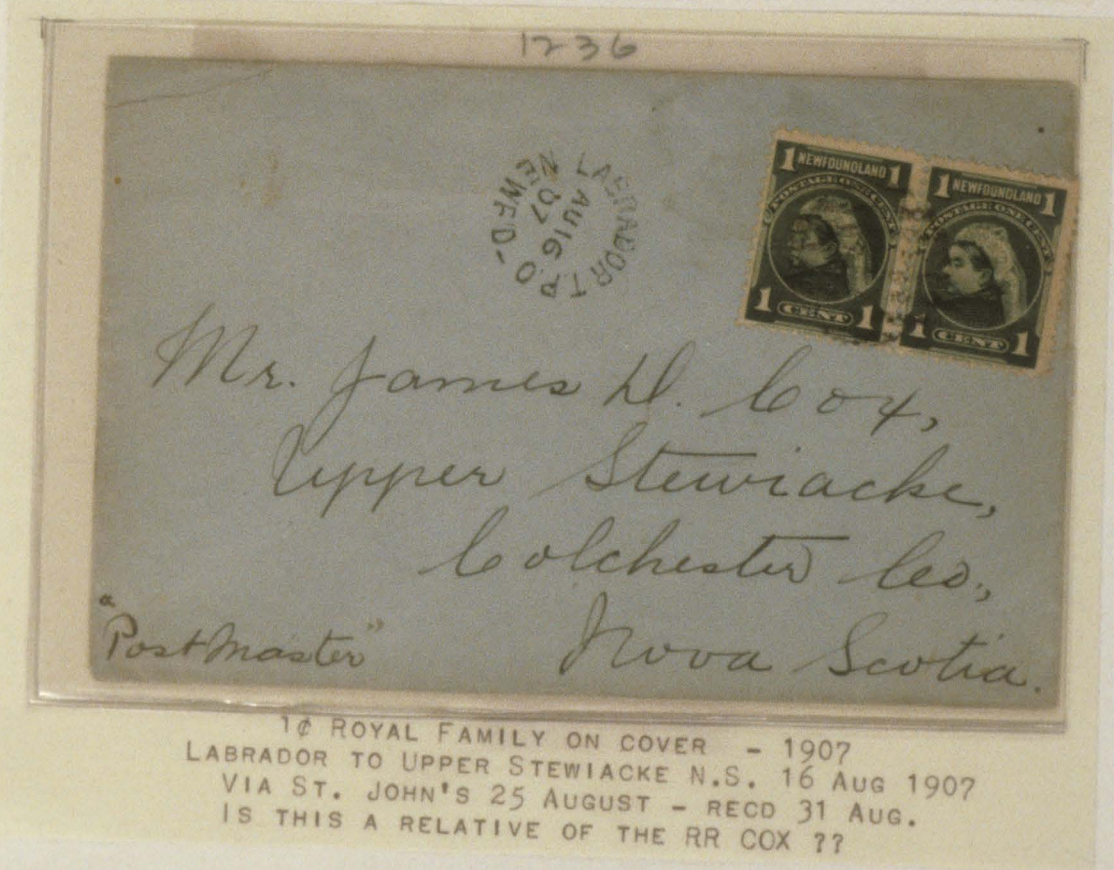 1236
LABRADOR T.P.O
NEWF'D-
AU 16
07
1 NEWFOUNDLAND 1
POSTAGE ONE CENT
1 CENT 1
1 NEWFOUNDLAND 1
POSTAGE ONE CENT
1 CENT 1
Mr. James D. Cox,
Upper Stewiacke,
Colchester Co.,
Nova Scotia.
"Postmaster"
1¢ ROYAL FAMILY ON COVER - 1907
LABRADOR TO UPPER STEWIACKE N.S. 16 AUG 1907
VIA ST. JOHN'S 25 AUGUST - RECD 31 AUG.
IS THIS A RELATIVE OF THE RR COX ??